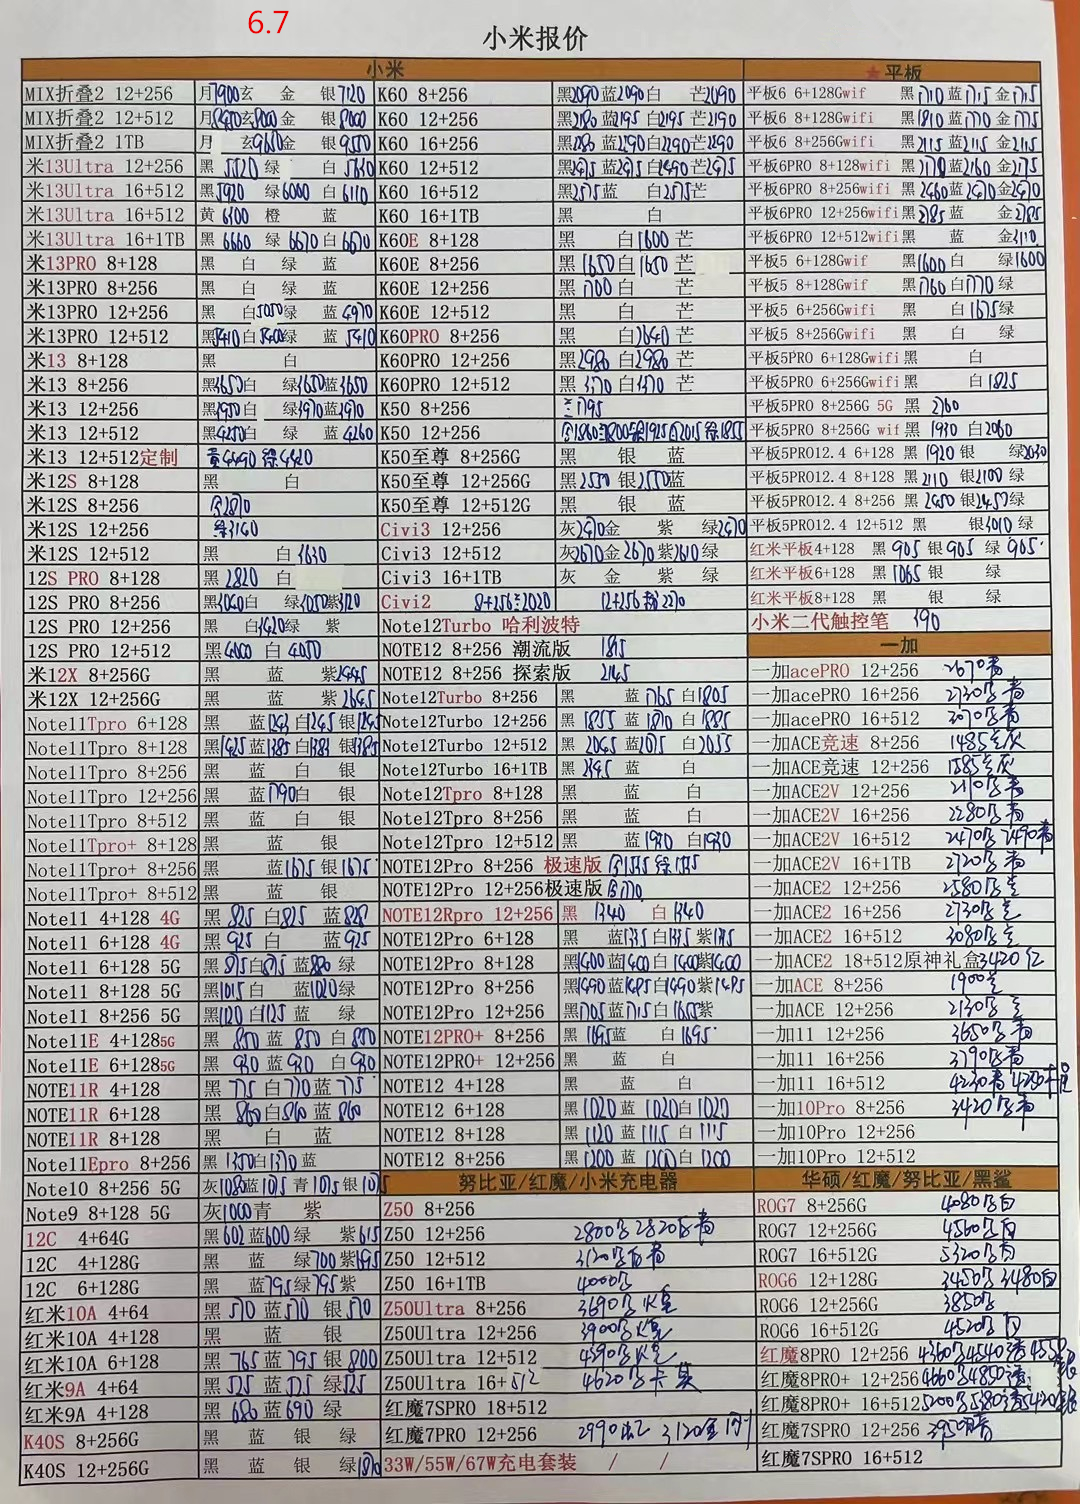 6.7
小米报价
小米
MIX折叠2 12+256 月7900玄 金 银7120
MIX折叠2 12+512 月 金 银8000
MIX折叠2 1TB 月 玄9650金 银9550
米13Ultra 12+256 黑 5520 绿 白 5630
米13Ultra 16+512 黑5920 绿6000 白6110
米13Ultra 16+512 黄 6100 橙 蓝
米13Ultra 16+1TB 黑 6660 绿 6670 白6670
米13PRO 8+128 黑 白 绿 蓝
米13PRO 8+256 黑 白 绿 蓝
米13PRO 12+256 黑 白5050绿 蓝4970
米13PRO 12+512 黑5410白5400绿 蓝5410
米13 8+128 黑 白
米13 8+256 黑3650白 绿3650蓝3650
米13 12+256 黑3950白 绿3970蓝3970
米13 12+512 黑4250白 绿 蓝 4260
米13 12+512定制 黄4490 绿4420
米12S 8+128 黑 白
米12S 8+256
米12S 12+256 绿3140
米12S 12+512 黑 白3630
12S PRO 8+128 黑 2820 白
12S PRO 8+256 黑3040白 绿3050紫3120
12S PRO 12+256 黑 白3420绿 紫
12S PRO 12+512 黑4000 白 4050
米12X 8+256G 黑 蓝 紫2445
米12X 12+256G 黑 蓝 紫 2645
Note11Tpro 6+128 黑 蓝1243白1245银1245
Note11Tpro 8+128 黑1425蓝1385白1383银1385
Note11Tpro 8+256 黑 蓝 白 银
Note11Tpro 12+256 黑 蓝1790白 银
Note11Tpro 8+512 黑 蓝 白 银
Note11Tpro+ 8+128 黑 蓝 银
Note11Tpro+ 8+256 黑 蓝1675 银1675
Note11Tpro+ 8+512 黑 蓝 银
Note11 4+128 4G 黑 825 白825 蓝828
Note11 6+128 4G 黑 925 白 蓝925
Note11 6+128 5G 黑875白875蓝880 绿
Note11 8+128 5G 黑1015白 蓝1020绿
Note11 8+256 5G 黑1120白1125 蓝 绿
Note11E 4+1285G 黑 850 蓝 850 白 850
Note11E 6+1285G 黑 930 蓝 930 白 930
NOTE11R 4+128 黑 775 白770蓝 775
NOTE11R 6+128 黑 860白860 蓝 860
NOTE11R 8+128 黑 白 蓝
Note11Epro 8+256 黑 1350白1370 蓝
Note10 8+256 5G 灰1080蓝1075 青 1075银1075
Note9 8+128 5G 灰1000青 紫
12C 4+64G 黑 602蓝600绿 紫615
12C 4+128G 黑 蓝 绿700紫695
12C 6+128G 黑 蓝795绿795紫
红米10A 4+64 黑 570 蓝570 银570
红米10A 4+128 黑 蓝 银
红米10A 6+128 黑 765 蓝 795 银 800
红米9A 4+64 黑 525 蓝 525 绿525
红米9A 4+128 黑 680 蓝690 绿
K40S 8+256G 黑 蓝 银 绿
K40S 12+256G 黑 蓝 银 绿1870
K60 8+256 黑2090蓝2090白 芒2090
K60 12+256 黑2180蓝2195 白2195 芒2190
K60 16+256 黑2283蓝2290白2290芒2290
K60 12+512 黑2475蓝2475白2490芒2475
K60 16+512 黑2575蓝 白2575芒
K60 16+1TB 黑 白
K60E 8+128 黑 白1600 芒
K60E 8+256 黑 1650白 1650 芒
K60E 12+256 黑 1700 白 芒
K60E 12+512 黑 白 芒
K60PRO 8+256 黑 白2640 芒
K60PRO 12+256 黑2980 白2980 芒
K60PRO 12+512 黑 3170 白3170 芒
K50 8+256 兰1795
K50 12+256
K50至尊 8+256G 黑 银 蓝
K50至尊 12+256G 黑2550 银2550蓝
K50至尊 12+512G 黑 银 蓝
Civi3 12+256 灰2470金 紫 绿2470
Civi3 12+512 灰2670金 2670紫2610 绿
Civi3 16+1TB 灰 金 紫 绿
Civi2 8+256兰2020 12+256粉2270
Note12Turbo 哈利波特
NOTE12 8+256 潮流版 1815
NOTE12 8+256 探索版 2145
Note12Turbo 8+256 黑 蓝1765 白1805
Note12Turbo 12+256 黑 1855 蓝1870 白 1885
Note12Turbo 12+512 黑 2045 蓝2075 白 2055
Note12Turbo 16+1TB 黑 2345 蓝 白
Note12Tpro 8+128 黑 蓝 白
Note12Tpro 8+256 黑 蓝 白
Note12Tpro 12+512 黑 蓝1930 白1930
NOTE12Pro 8+256 极速版
NOTE12Pro 12+256极速版
NOTE12Rpro 12+256 黑 1340 白 1340
NOTE12Pro 6+128 黑 蓝1335白1335紫1315
NOTE12Pro 8+128 黑1400蓝1400白1400紫1400
NOTE12Pro 8+256 黑1490蓝1495白1490紫1495
NOTE12Pro 12+256 黑1705蓝1715白1655紫
NOTE12PRO+ 8+256 黑 1695蓝 白 1695
NOTE12PRO+ 12+256 黑 蓝 白
NOTE12 4+128 黑 蓝 白
NOTE12 6+128 黑1020 蓝 1020白 1020
NOTE12 8+128 黑 1120 蓝 1115 白 1115
NOTE12 8+256 黑 1200 蓝 1200白 1200
努比亚/红魔/小米充电器
Z50 8+256
Z50 12+256 2800 2820
Z50 12+512 3120
Z50 16+1TB 4000
Z50Ultra 8+256 3690
Z50Ultra 12+256 3900
Z50Ultra 12+512 4390
Z50Ultra 16+512 4620
红魔7SPRO 18+512
红魔7PRO 12+256 2990 3120
33W/55W/67W充电套装 / /
★平板
平板6 6+128Gwif 黑 1710 蓝1715 金1715
平板6 8+128Gwifi 黑1810 蓝1770 金1775
平板6 8+256Gwifi 黑2115 蓝2115 金2115
平板6PRO 8+128wifi 黑2170蓝2160 金2175
平板6PRO 8+256wifi 黑2460蓝2470金2470
平板6PRO 12+256wifi 黑2785蓝 金2785
平板6PRO 12+512wifi 黑 蓝 金3110
平板5 6+128Gwif 黑1600 白 绿1600
平板5 8+128Gwif 黑1760白1770绿
平板5 6+256Gwifi 黑 白1675绿
平板5 8+256Gwifi 黑 白 绿
平板5PRO 6+128Gwifi 黑 白
平板5PRO 6+256Gwifi 黑 白1825
平板5PRO 8+256G 5G 黑 2760
平板5PRO 8+256G wif 黑 1930 白2060
平板5PRO12.4 6+128 黑 1920 银 绿2030
平板5PRO12.4 8+128 黑 2110 银2100 绿
平板5PRO12.4 8+256 黑 2450 银2457绿
平板5PRO12.4 12+512 黑 银3010 绿
红米平板4+128 黑 905 银905 绿 905
红米平板6+128 黑 1065 银 绿
红米平板8+128 黑 银 绿
小米二代触控笔 390
一加
一加acePRO 12+256 2670青
一加acePRO 16+256 2730 青
一加acePRO 16+512 3070 青
一加ACE竞速 8+256 1485 灰
一加ACE竞速 12+256 1585 灰
一加ACE2V 12+256 2110 青
一加ACE2V 16+256 2280 青
一加ACE2V 16+512 2470 2490青
一加ACE2V 16+1TB 2720 青
一加ACE2 12+256 2580
一加ACE2 16+256 2730
一加ACE2 16+512 3080
一加ACE2 18+512原神礼盒3420 红
一加ACE 8+256 1900
一加ACE 12+256 2130
一加11 12+256 3650 青
一加11 16+256 3790 青
一加11 16+512 4230青
一加10Pro 8+256 3420 青
一加10Pro 12+256
一加10Pro 12+512
华硕/红魔/努比亚/黑鲨
ROG7 8+256G 4080 白
ROG7 12+256G 4560 白
ROG7 16+512G 5320 白
ROG6 12+128G 3450 3480白
ROG6 12+256G 3850
ROG6 16+512G 4520 白
红魔8PRO 12+256 4360 4540透
红魔8PRO+ 12+256 4660 4850透
红魔8PRO+ 16+512 5200 5380透5420银
红魔7SPRO 12+256 3950
红魔7SPRO 16+512